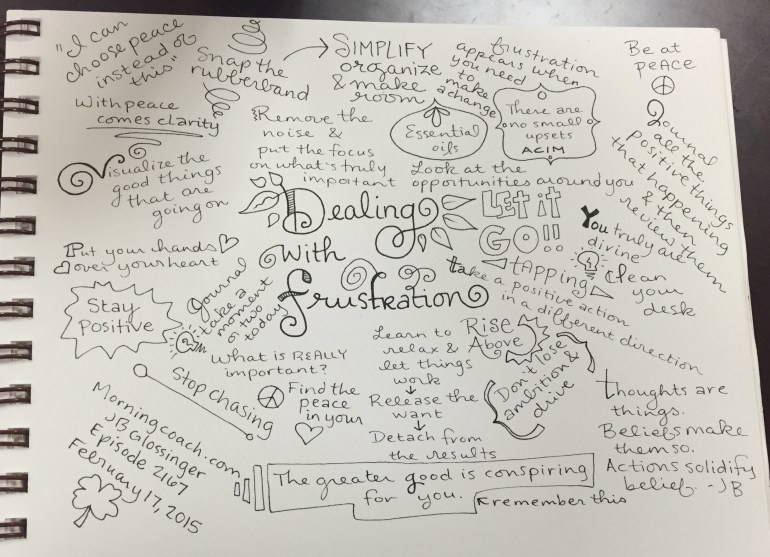 "I can
choose peace
instead of
this"
Snap the
rubberband
SIMPLIFY
organize
& make
room
frustration
appears when
you need
to
make
a change
Be at
peace
With peace
comes clarity
Remove the
noise &
put the focus
on what's truly
important
Essential
oils
There are
no small
upsets
ACIM
Journal
all the
positive things
that happening
& then
review them
Visualize the
good things
that are
going on
Look at the
opportunities around you
Dealing
With
frustration
LET it
GO!!
You truly are
divine
Put your hands
over your heart
tapping
Clean
your
desk
take a positive action
in a different direction
Stay
Positive
Journal
take a
moment
or two
today
What is REALLY
important?
Learn to
relax &
let things
work
Release the
want
Detach from
the results
Rise
Above
Don't lose
ambition &
drive
Stop chasing
Find the
peace
in your
thoughts are
things.
Beliefs make
them so.
Actions solidify
belief. -JB
Morningcoach.com
JB Glossinger
Episode 2167
February 17, 2015
The greater good is conspiring
for you.
remember this